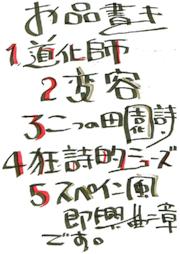 お品書き
1道化師
2変容
3二つの田園詩
4狂詩的ミューズ
5スペイン風
即興曲章
です。